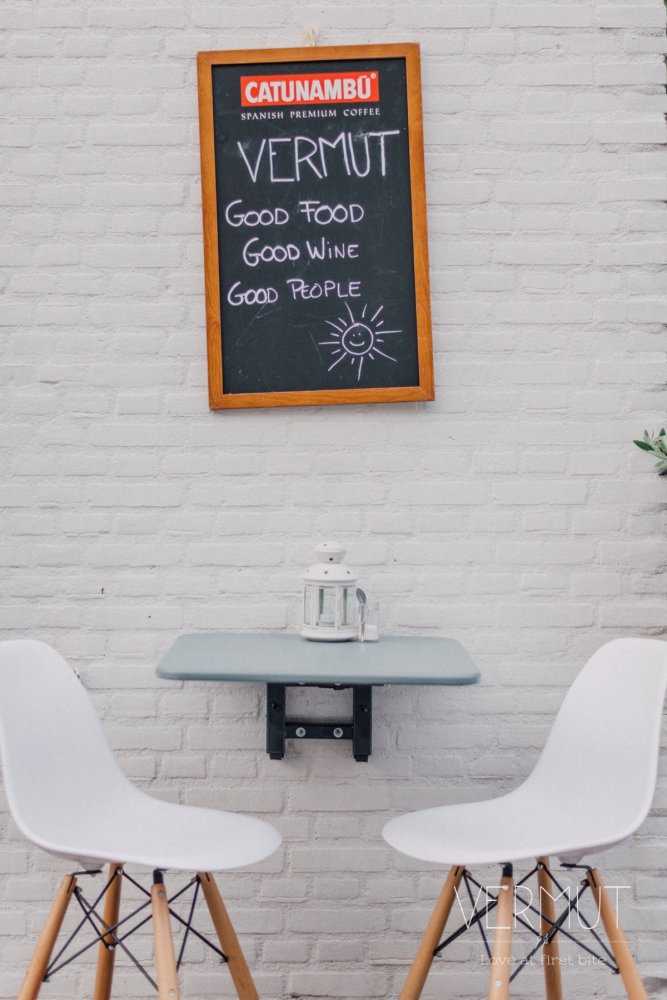 CATUNAMBÚ®
SPANISH PREMIUM COFFEE
VERMUT
GOOD FOOD
GOOD WINE
GOOD PEOPLE
VERMUT
Love at first bite